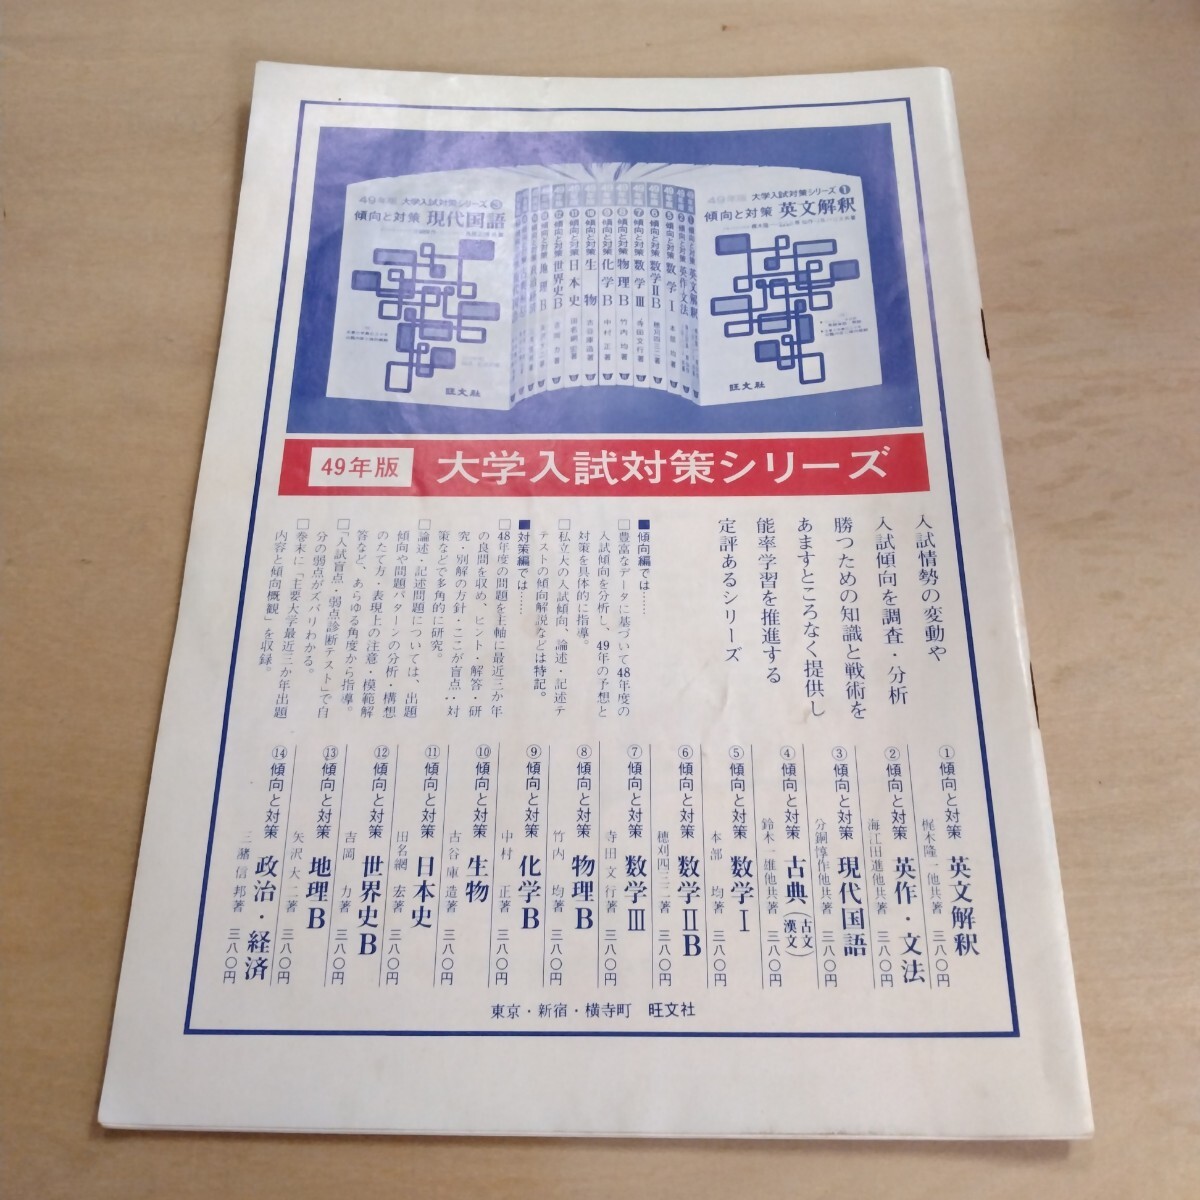 49年版 大学入試対策シリーズ③
傾向と対策 現代国語
旺文社
傾向と対策 世界史B
傾向と対策 日本史
傾向と対策 生物
傾向と対策 化学B
傾向と対策 物理B
傾向と対策 数学Ⅲ
傾向と対策 数学ⅡB
傾向と対策 数学Ⅰ
傾向と対策 英作文法
傾向と対策 英文解釈
49年版 大学入試対策シリーズ①
傾向と対策 英文解釈
旺文社
49年版 大学入試対策シリーズ
入試情勢の変動や
入試傾向を調査・分析
勝つための知識と戦術を
あますところなく提供し
能率学習を推進する
定評あるシリーズ
■傾向編では……
□豊富なデータに基づいて48年度の
入試傾向を分析し、49年の予想と
対策を具体的に指導。
□私立大の入試傾向、論述・記述テ
ストの傾向解説などは特記。
■対策編では……
□48年度の問題を主軸に最近三か年
の良問を収め、ヒント・解答・研
究・別解の方針・ここが盲点・対
策などで多角的に研究。
□論述・記述問題については、出題
傾向や問題パターンの分析・構想
のたて方・表現上の注意・模範解
答など、あらゆる角度から指導。
□「入試盲点・弱点診断テスト」で自
分の弱点がズバリわかる。
□巻末に「主要大学最近三か年出題
内容と傾向概観」を収録。
①傾向と対策 英文解釈
梶木隆一他共著 三八〇円
②傾向と対策 英作・文法
海江田進他共著 三八〇円
③傾向と対策 現代国語
分銅惇作他共著 三八〇円
④傾向と対策 古典(古文漢文)
鈴木一雄他共著 三八〇円
⑤傾向と対策 数学Ⅰ
本部 均著 三八〇円
⑥傾向と対策 数学ⅡB
穂刈四三二著 三八〇円
⑦傾向と対策 数学Ⅲ
寺田文行著 三八〇円
⑧傾向と対策 物理B
竹内 均著 三八〇円
⑨傾向と対策 化学B
中村 正著 三八〇円
⑩傾向と対策 生物
古谷庫造著 三八〇円
⑪傾向と対策 日本史
田名網 宏著 三八〇円
⑫傾向と対策 世界史B
吉岡 力著 三八〇円
⑬傾向と対策 地理B
矢沢大二著 三八〇円
⑭傾向と対策 政治・経済
三瀦信邦著 三八〇円
東京・新宿・横寺町 旺文社